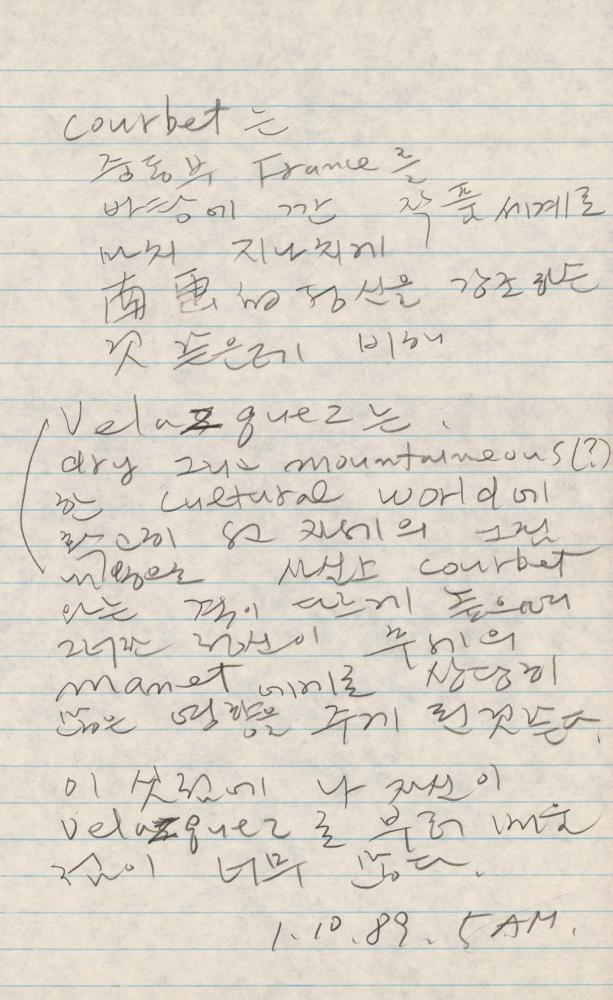 Courbet 는
중동부 France를
바탕에 깐 작품세계로
마치 지나치게
南 的 정신을 강조하는
것 같은데 비해
Velazquez는.
dry 그리고 mountaineous(?)
한 cultural world에
의
사실상 Courbet
와는 격이 다르게 높으며
그러한 정신이 후세의
manet 에게로 상당히
많은 영향을 주게 된것같다.
이 싯점에 나 자신이
Velazquez로 부터 배울
점이 너무 많다.
1.10.89. 5AM.